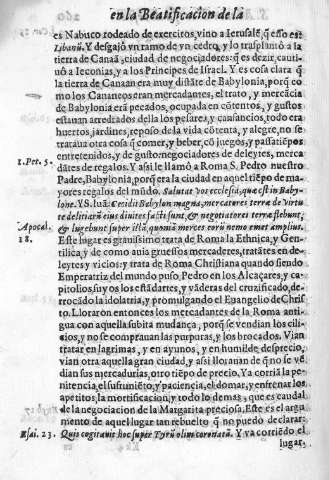 en la Beatificacion de la
es Nabuco rodeado de exercitos, vino a Ierusalē, q̄ esso es:
Libanū. Y desgajò vn ramo de vn cedro, y lo trasplantò a la
tierra de Canaā, ciudad de negociadores: q̄ es dezir, cauti-
uò a Ieconias, y a los Principes de Israel. Y es cosa clara q̄
la tierra de Canaan era muy distāte de Babylonia, porq̄ co
mo los Cananeos eran mercadantes, el trato, y mercācia
de Babylonia erā pecados, ocupada en cōtentos, y gustos
estauan arredrados della los pesares, y cansancios, todo era
huertos, jardines, reposo de la vida cōtenta, y alegre, no se
trataua otra cosa q̄ comer, y beber, cō juegos, y passatiēpos
entretenidos, y de gusto: negociadores de deleytes, merca
dātes de regalos. Y assi le llamò a Roma S. Pedro nuestro
1. Pet. 5.
Padre, Babylonia, porq̄ era la ciudad en aquel tiēpo de ma
yores regalos del mūdo. Salutat vos ecclesia, que est in Baby-
lone. Y S. Iuā: Cecidit Babylon magna, mercatores terræ de virtu
te delitiarū eius diuites facti sunt, & negotiatores terræ flebunt,
Apocal.
18.
& lugebunt super illā, quoniā merces eorū nemo emet amplius.
Este lugar es grauissimo trata de Roma la Ethnica, y Gen-
tilica, y de como auia gruessos mercaderes, tratātes en de-
leytes y vicios: y trata de Roma Christiana quando siendo
Emperatriz del mundo puso Pedro en los Alcaçares, y ca-
pitolios, suyos los estādartes, y vāderas del crucificado, de-
rrocādo la idolatria, y promulgando el Euangelio de Chris
to. Lloraron entonces los mercadantes de la Roma anti-
gua con aquella subita mudança, porq̄ se vendian los cili-
cios, y no se comprauan las purpuras, y los brocados. Vian
tratar en lagrimas, y en ayunos, y en humilde desprecio,
vian otra aquella gran ciudad, y assi lleuauan de q̄ no se vē
dian sus mercadurias, otro tiēpo de precio. Ya corriā la pe-
nitencia, el sufrimiēto, y paciencia, el domar, y enfrenar los
apetitos, la mortificacion, y todo lo demas, que es caudal
de la negociacion de la Margarita preciosa. Este es el argu
mento de aquel lugar tan rebuelto q̄ no puedo declarar:
Esai. 23.
Quis cogitauit hoc super Tyrū olim coronatā. Y va corriēdo el
lugar